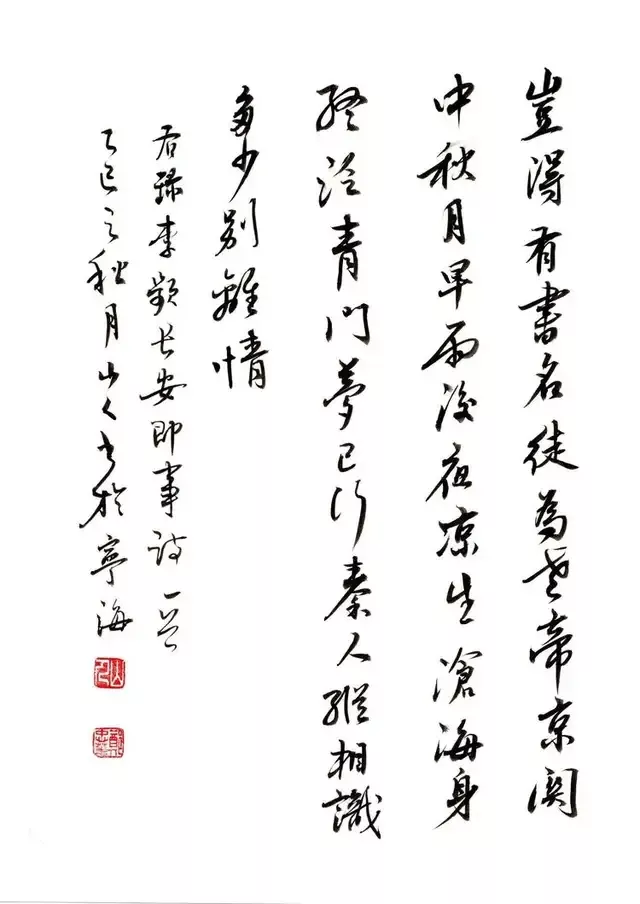 豈得有書名徒為老帝京関
中秋月早雨後夜凉生滄海身
終泛青門夢已行秦人縱相識
多少别離情
右録李長安即事詩一首
乙巳之秋月山人书於寧海